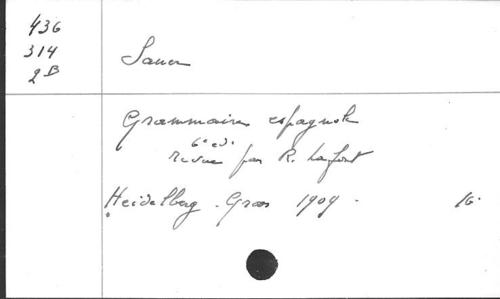 436
314
2 B
Sauer
Grammaire espagnole
6e ed.
revue par R. Lafont
Heidelberg. Groos 1909. 16.